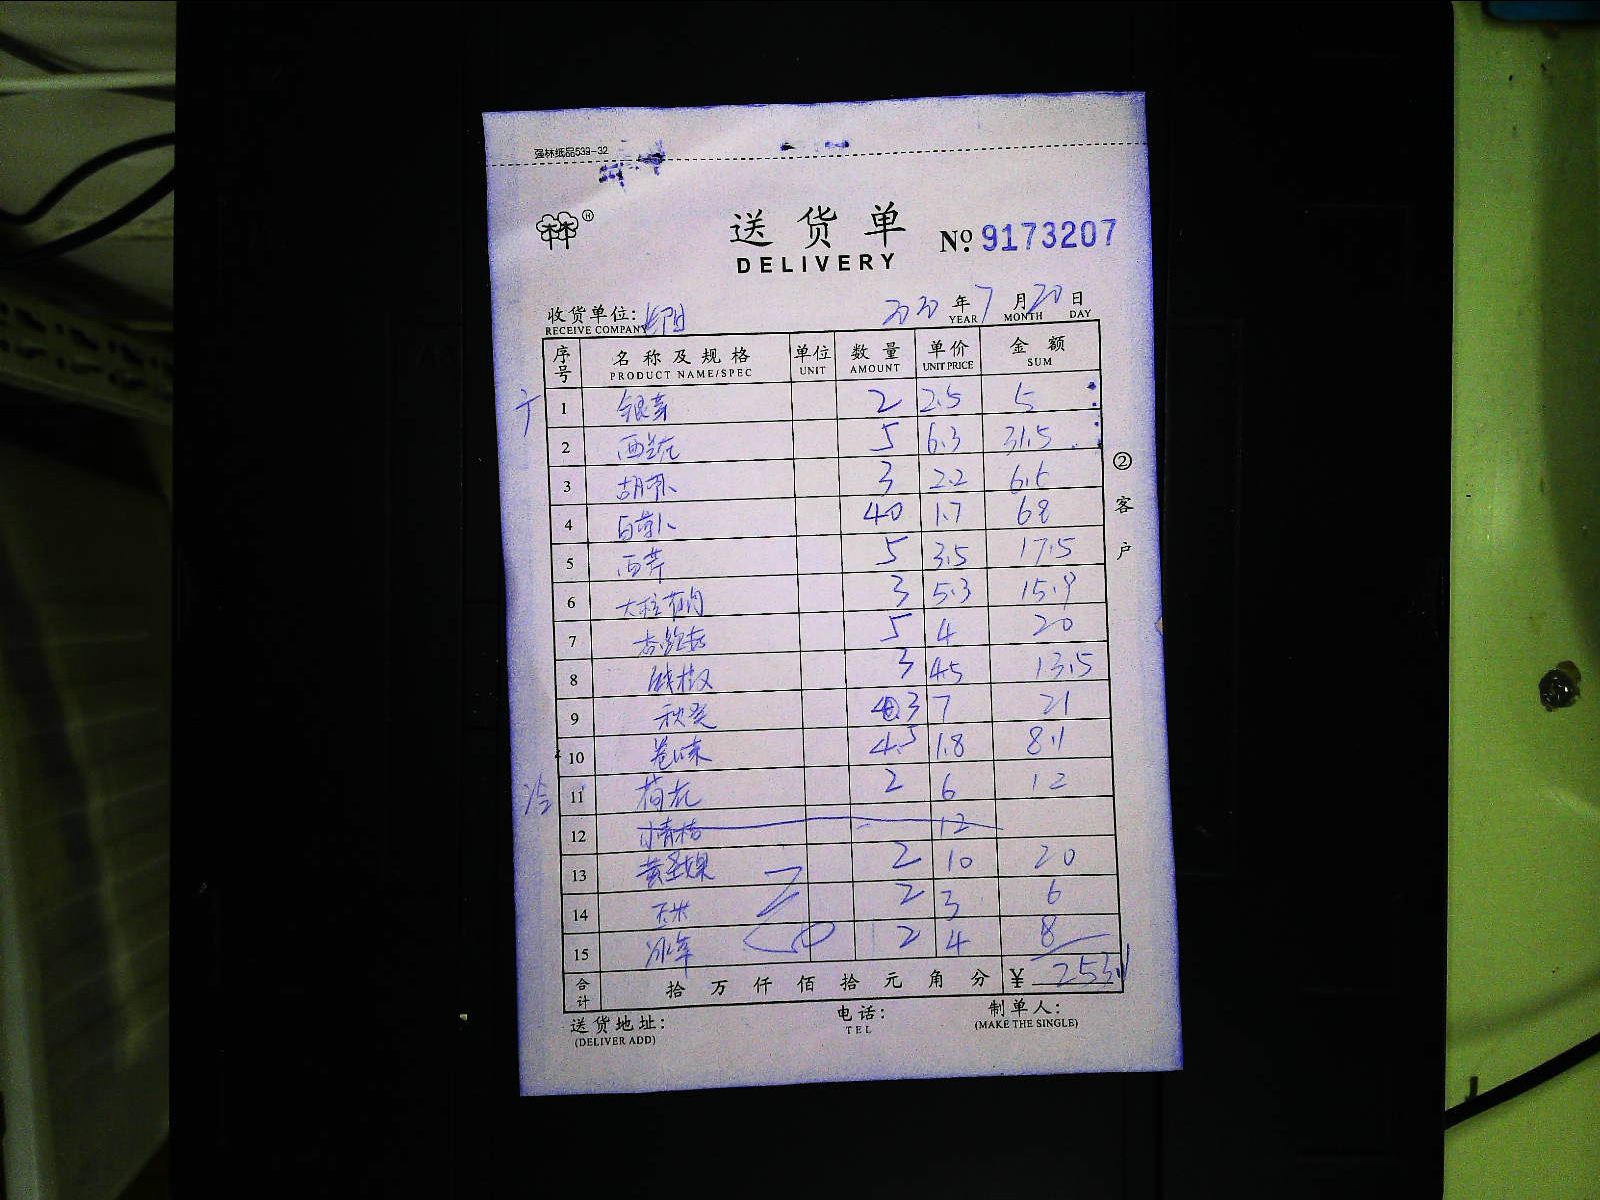 强林纸品539-32
送货单
DELIVERY
No. 9173207
收货单位:
RECEIVE COMPANY
2020年7月20日
YEAR MONTH DAY
序号 名称及规格 单位 数量 单价 金额
PRODUCT NAME/SPEC UNIT AMOUNT UNIT PRICE SUM
1 银芽 2 2.5 5
2 西兰花 5 6.3 31.5
3 胡萝卜 3 2.2 6.6
4 白萝卜 40 1.7 68
5 西芹 5 3.5 17.5
6 3 5.3 15.9
7 杏鲍菇 5 4 20
8 线椒 3 4.5 13.5
9 秋葵 3 7 21
10 4.5 1.8 8.1
11 荷花 2 6 12
12 小青桔 12
13 2 10 20
14 玉米 2 3 6
15 冰草 2 4 8
合计 拾 万 仟 佰 拾 元 角 分 ¥ 253.1
送货地址: 电话: 制单人:
(DELIVER ADD) TEL (MAKE THE SINGLE)
②客户
冷